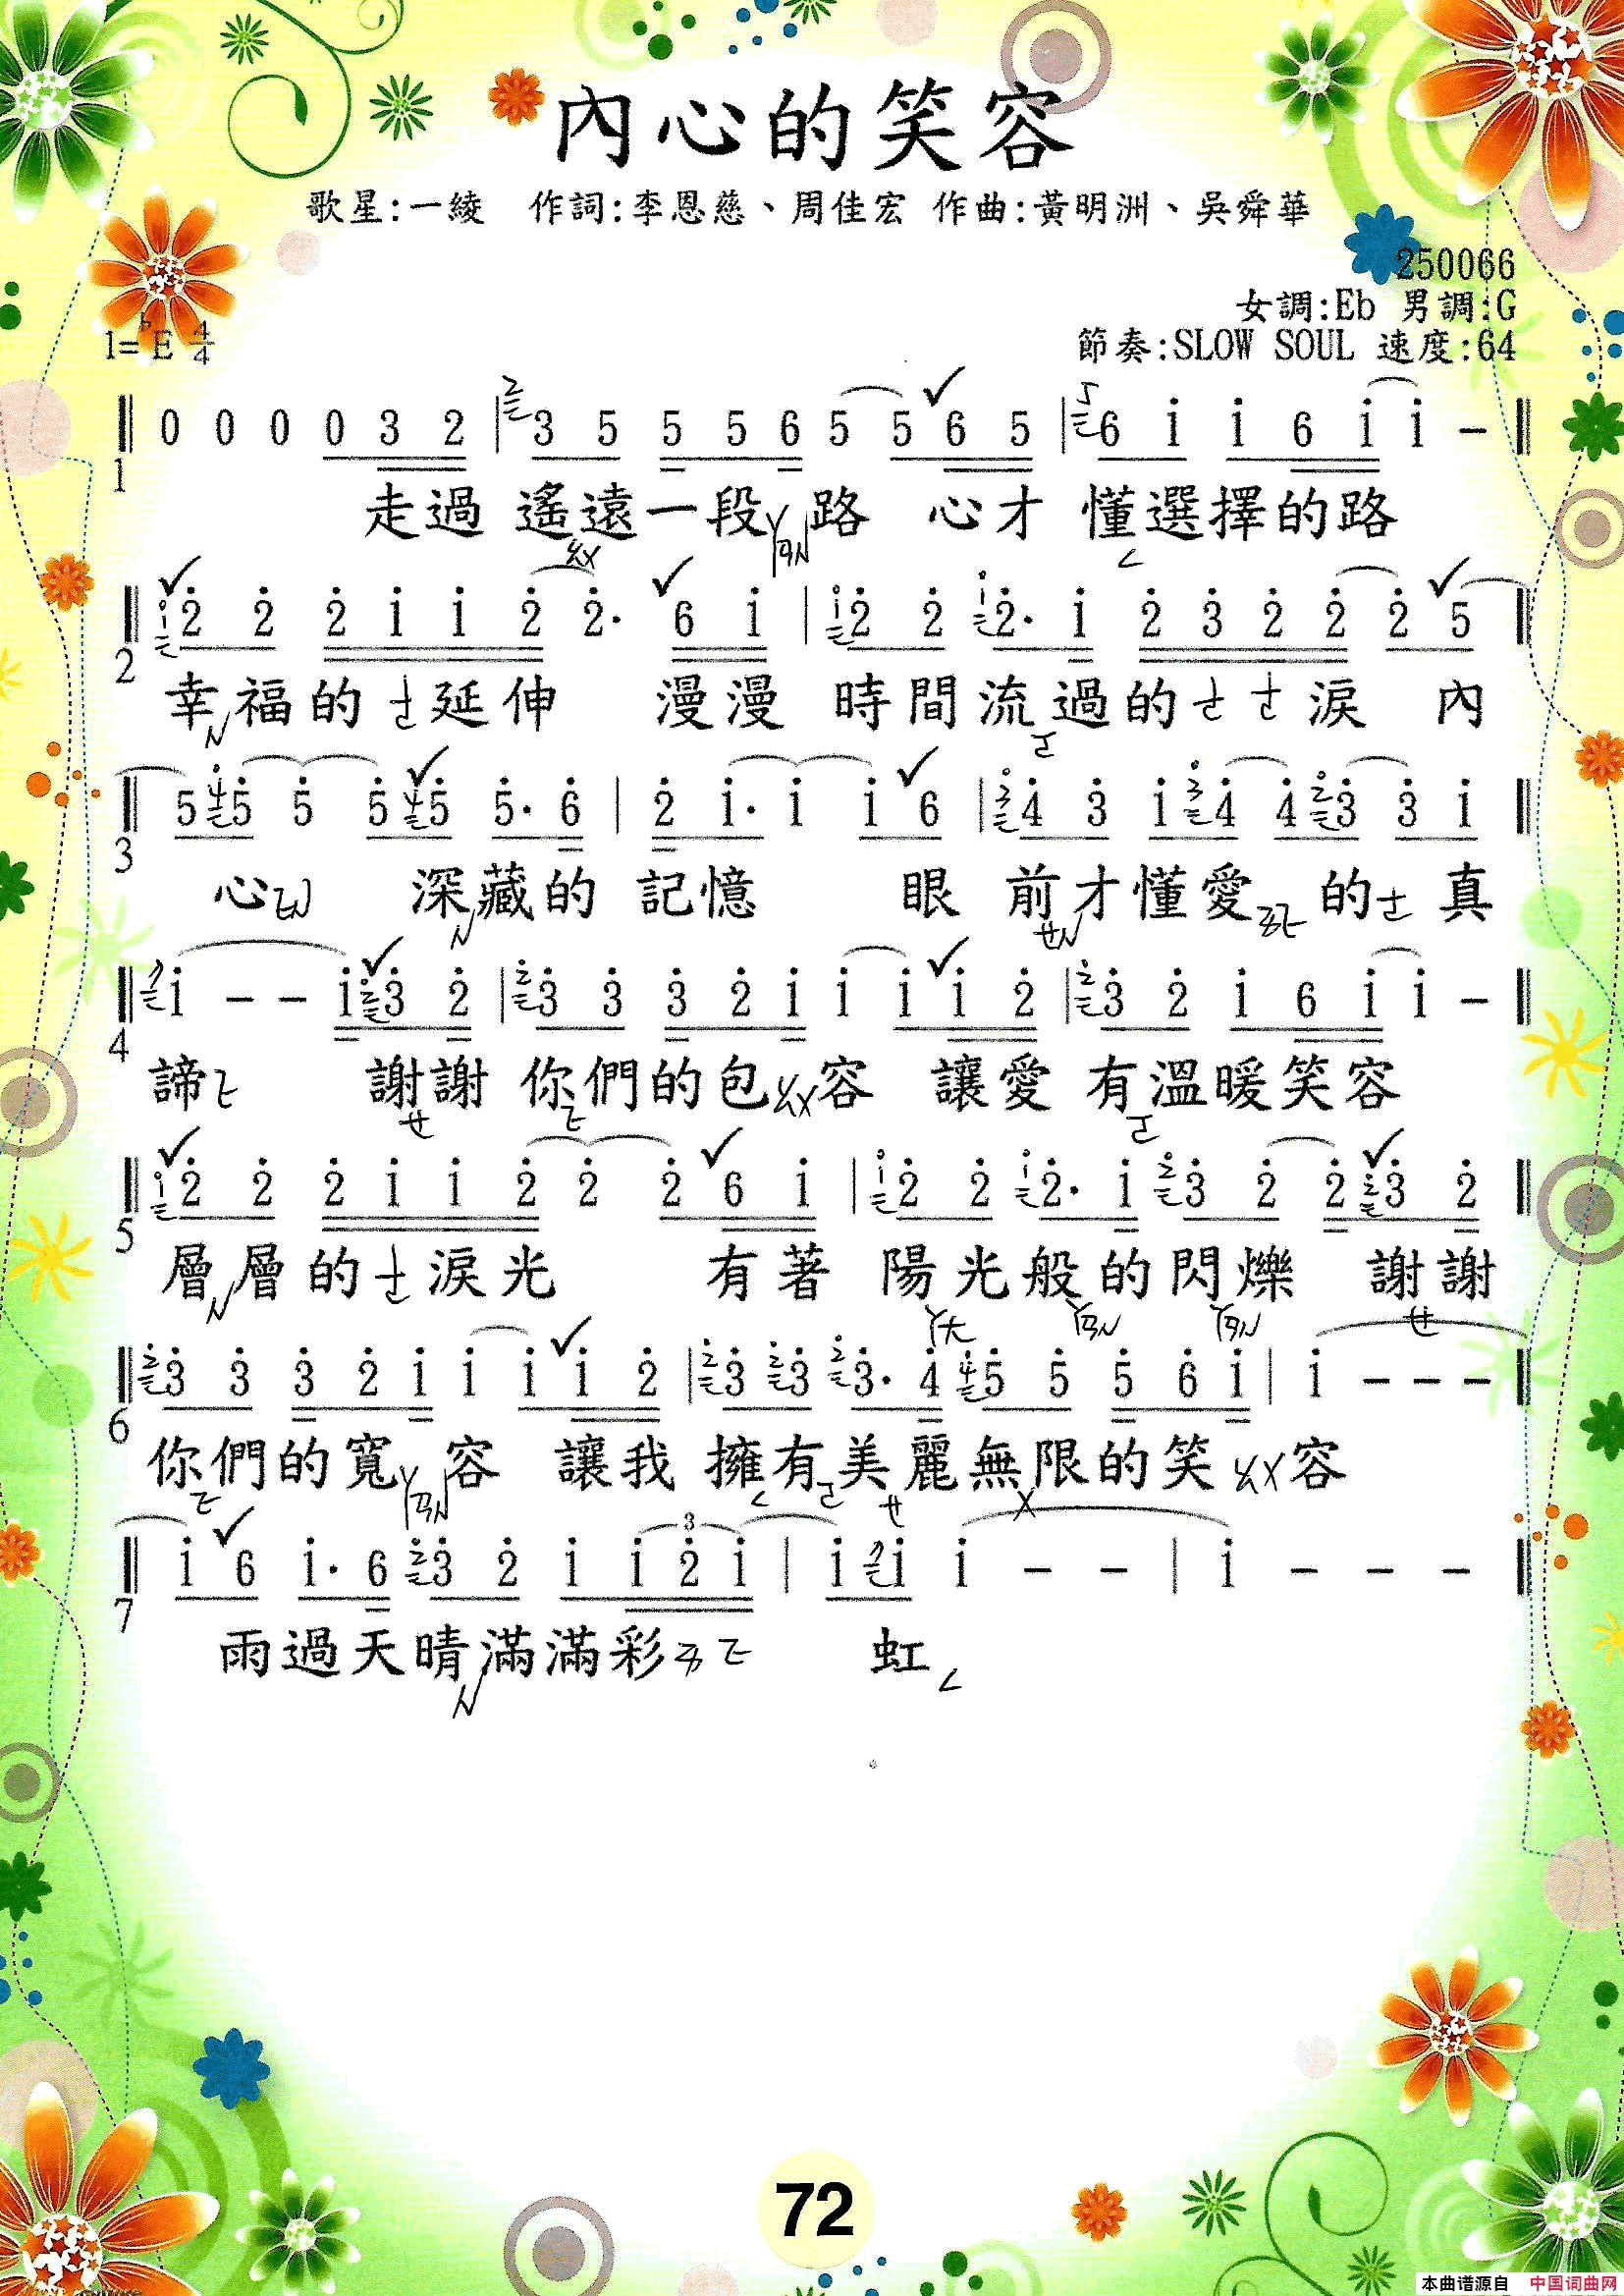 內心的笑容
歌星:一綾 作詞:李恩慈、周佳宏 作曲:黃明洲、吳舜華
250066
女調:Eb 男調:G
1=♭E 4/4 節奏:SLOW SOUL 速度:64
0 0 0 0 3 2 | 3 5 5 5 6 5 5 6 5 | 6 i i 6 i i -
1
走過 遙遠一段 路 心才 懂選擇的路
2 2 2 i i 2 2· 6 i | 2 2 2· i 2 3 2 2 2 5
2
幸福的ㄜ延伸 漫漫 時間流過的ㄜㄜ淚 內
5 5 5 5 5 5· 6 | 2 i· i i 6 | 4 3 i 4 4 3 3 i
3
心 深藏的 記憶 眼 前才懂愛 的ㄜ 真
i - - i 3 2 | 3 3 3 2 i i i i 2 | 3 2 i 6 i i -
4
諦 謝謝 你們的包ㄠㄨ容 讓愛 有溫暖笑容
2 2 2 i i 2 2 2 6 i | 2 2 2· i 3 2 2 3 2
5
層層的ㄜ淚光 有著 陽光般的閃爍 謝謝
3 3 3 2 i i i i 2 | 3 3 3· 4 5 5 5 6 i | i - - -
6
你們的寬 容 讓我 擁有美麗無限的笑ㄠㄨ容
i 6 i· 6 3 2 i i 2 i | i i i - - | i - - -
7
雨過天晴滿滿彩 虹
72
本曲谱源自 中国词曲网